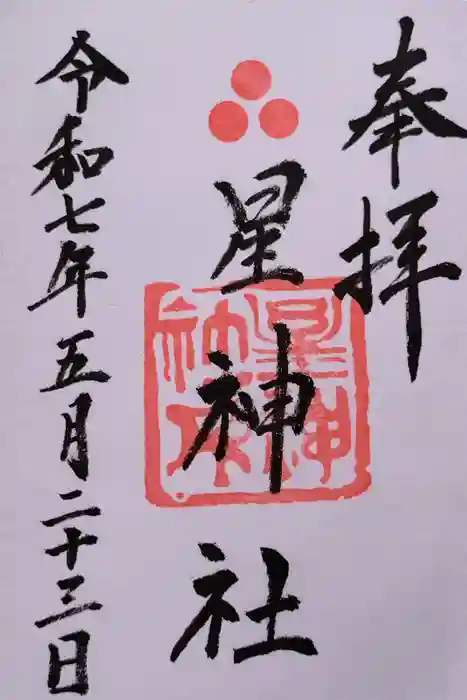 奉拝
星神社
令和七年五月二十三日